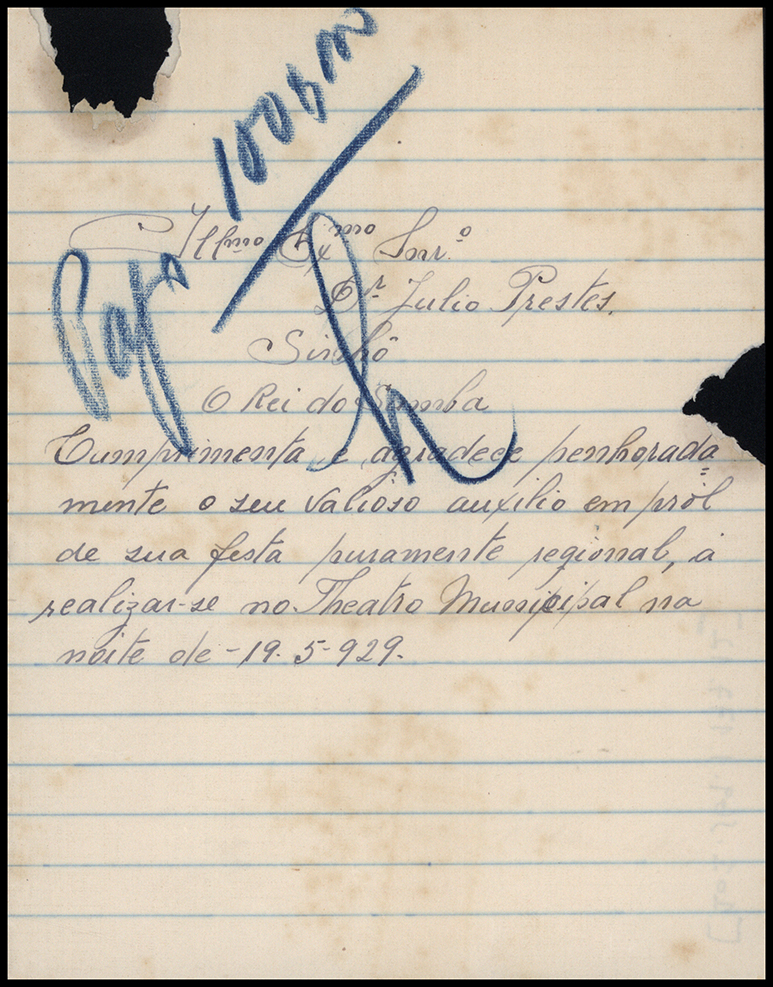 100$000
Pago
Illmo Exmo Snr.º
Dr. Julio Prestes.
Sinhô
O Rei do Samba
Cumprimenta e agradece penhorada
mente o seu valioso auxilio em pról
de sua festa puramente regional, a
realizar-se no Theatro Municipal na
noite de -19-5-929.